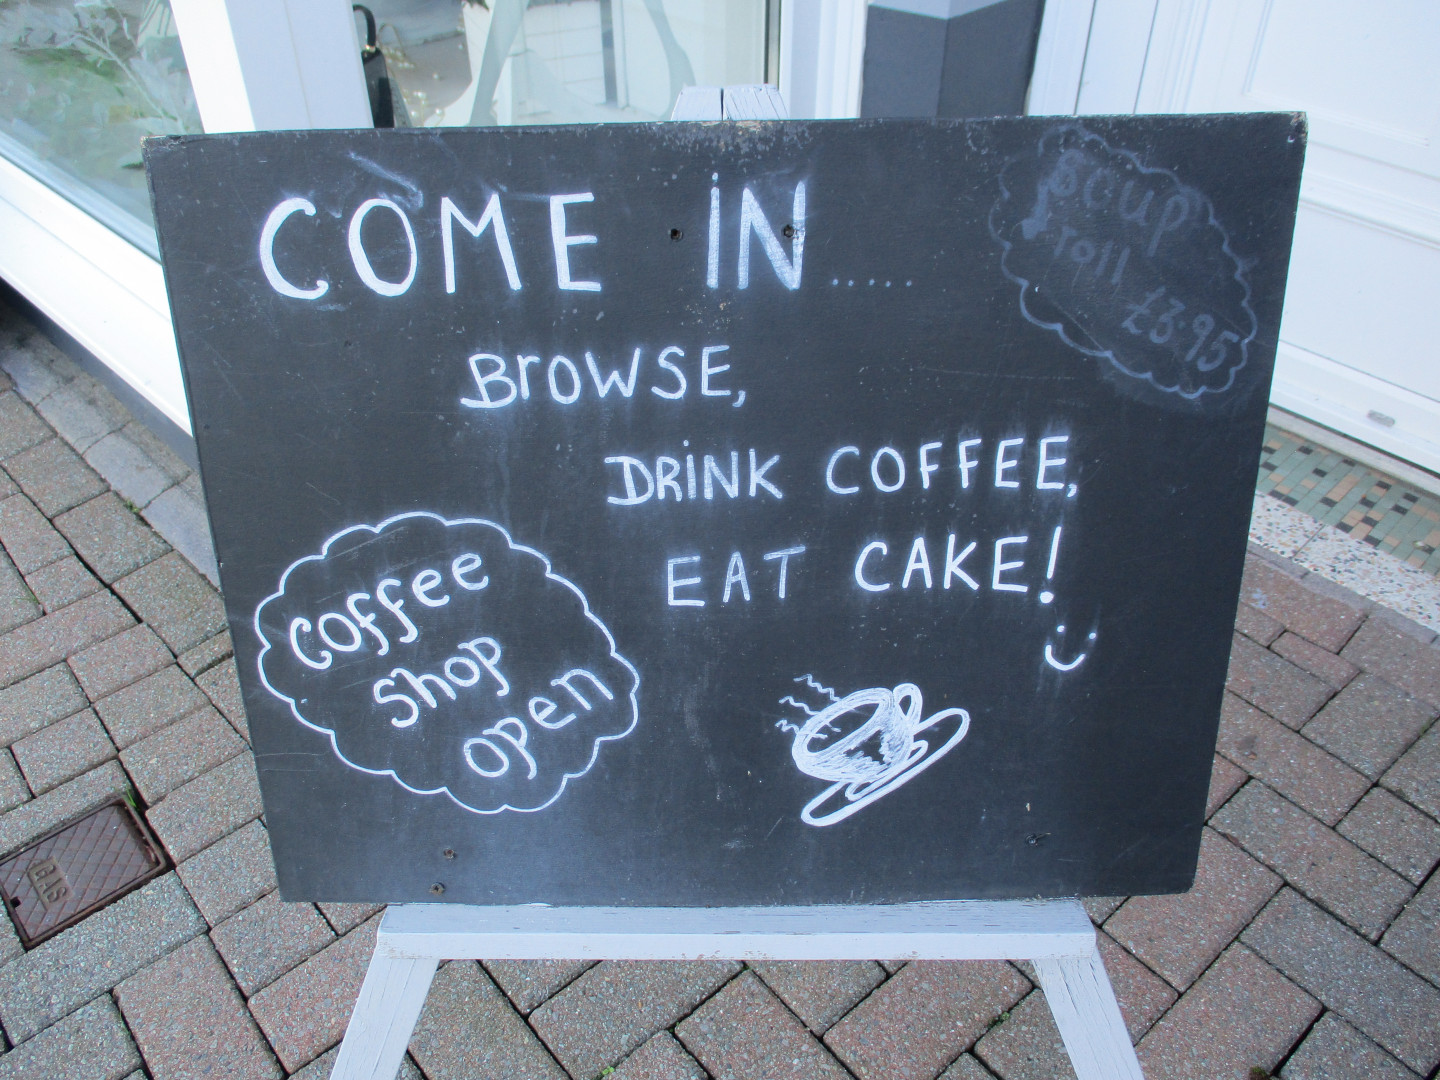 COME IN.....
BROWSE,
DRINK COFFEE,
EAT CAKE!
Soup
roll
£3.95
Coffee
shop
open
GAS